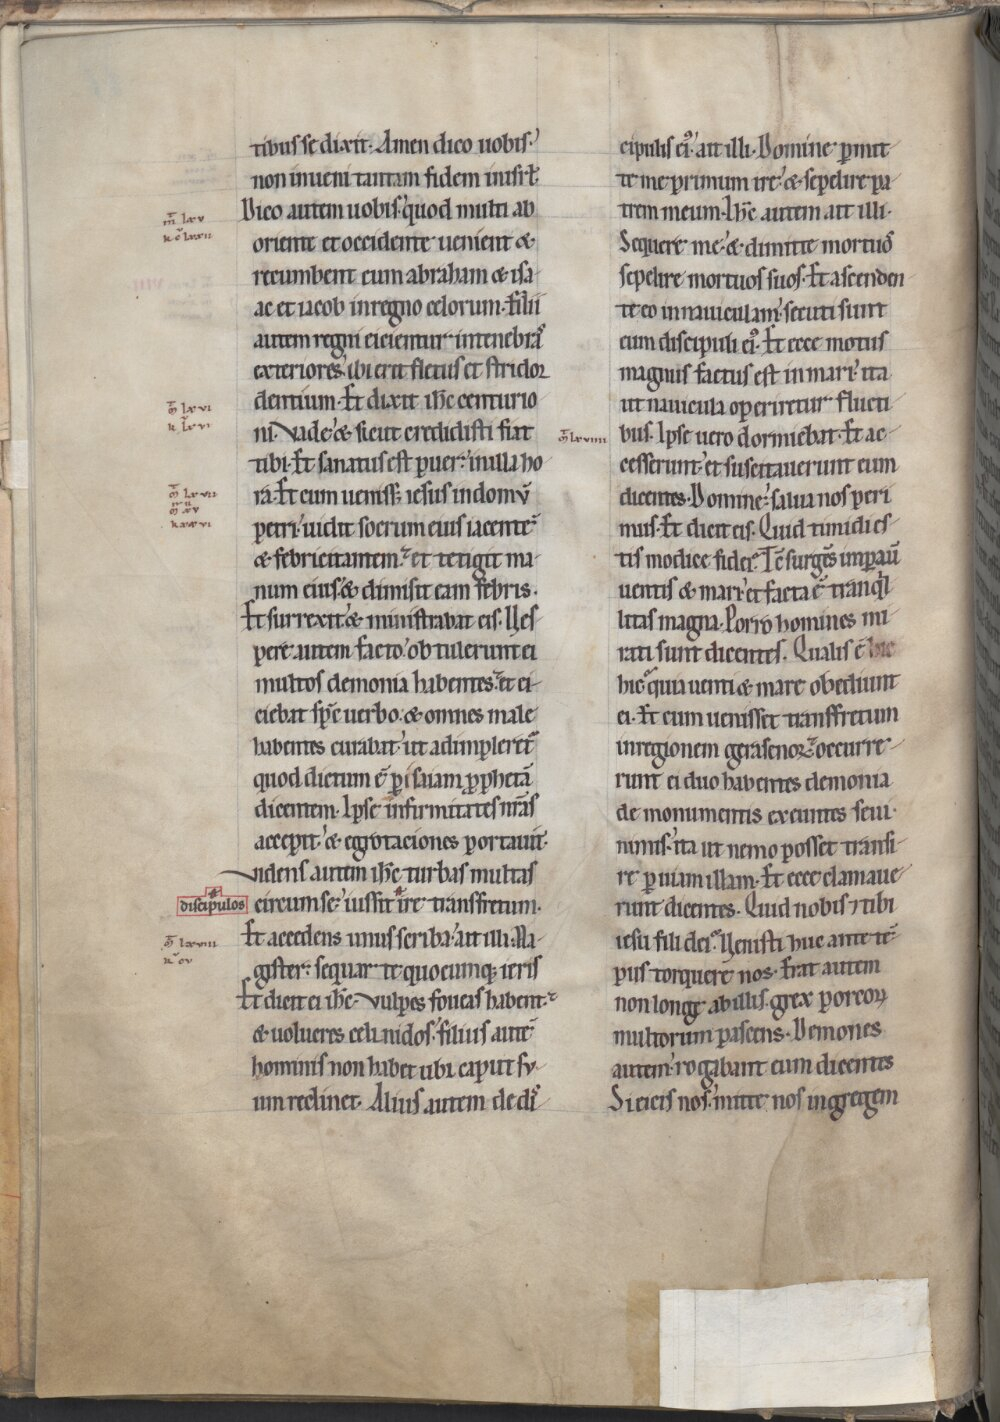 tibus se dixit. Amen dico uobis.
non inueni tantam fidem in isrl̄.
Dico autem uobis. quod multi ab
oriente et occidente uenient &
recumbent cum abraham & isa
ac et iacob in regno celorum. filii
autem regni eicientur in tenebras
exteriores. ibi erit fletus et stridor
dentium. Et dixit ih̄c centurio
ni. Vade. & sicut credidisti fiat
tibi. Et sanatus est puer. in illa ho
ra. Et cum ueniss; iesus in domū
petri. uidit socrum eius iacentē
& febricitantem. et tetigit ma
num eius. & dimisit eam febris.
Et surrexit. & ministrabat eis. Ues
pere autem facto. obtulerunt ei
multos demonia habentes. et ei
ciebat sp̄c uerbo. & omnes male
habentes curabat. ut adimpleret̄
quod dictum ē p̱ isaiam p̱phetā
dicentem. Ipse infirmitates nr̄as
accepit. & egrotaciones portauit.
Videns autem ih̄c turbas multas
discipulos
circum se. iussit ire transfretum.
Et accedens unus scriba. ait illi. Ma
gister. sequar te quocumq; ieris
Et dicit ei ih̄c. Vulpes foueas habent.
& uolucres celi nidos. filius autē
hominis non habet ubi caput su
um reclinet. Alius autem de di
m̄ lxv
m̄ lxvi
m̄ lxvii
m̄ lxviii
cipulis ei᾽. ait illi. Domine p̱mit
te me primum ire. & sepelire pa
trem meum. Ih̄c autem ait illi.
Sequere me. & dimitte mortuos
sepelire mortuos suos. Et ascenden
te eo in nauiculam. secuti sunt
eum discipuli ei᾽. Et ecce motus
magnus factus est in mari. ita
ut nauicula operiretur flucti
m̄ lxviiii
bus. Ipse uero dormiebat. Et ac
cesserunt. et suscitauerunt eum
dicentes. Domine. salua nos peri
mus. Et dicit eis. Quid timidi es
tis modice fidei. Tc̄ surgēs imp̱auit
uentis & mari. et facta ē tranq̇l
litas magna. Porro homines mi
rati sunt dicentes. Qualis ē hic
hic. quia uenti & mare obediunt
ei. Et cum uenisset transfretum
in regionem gerasenoꝝ. occurre
runt ei duo habentes demonia
de monumentis exeuntes seui.
nimis. ita ut nemo posset transi
re p̱ uiam illam. Et ecce clamaue
runt dicentes. Quid nobis ⁊ tibi
iesu fili dei. Uenisti huc ante tē
pus torquere nos. Erat autem
non longe ab illis. grex porcoꝝ
multorum pascens. Demones
autem. rogabant eum dicentes
Si eicis nos. mitte nos in gregem